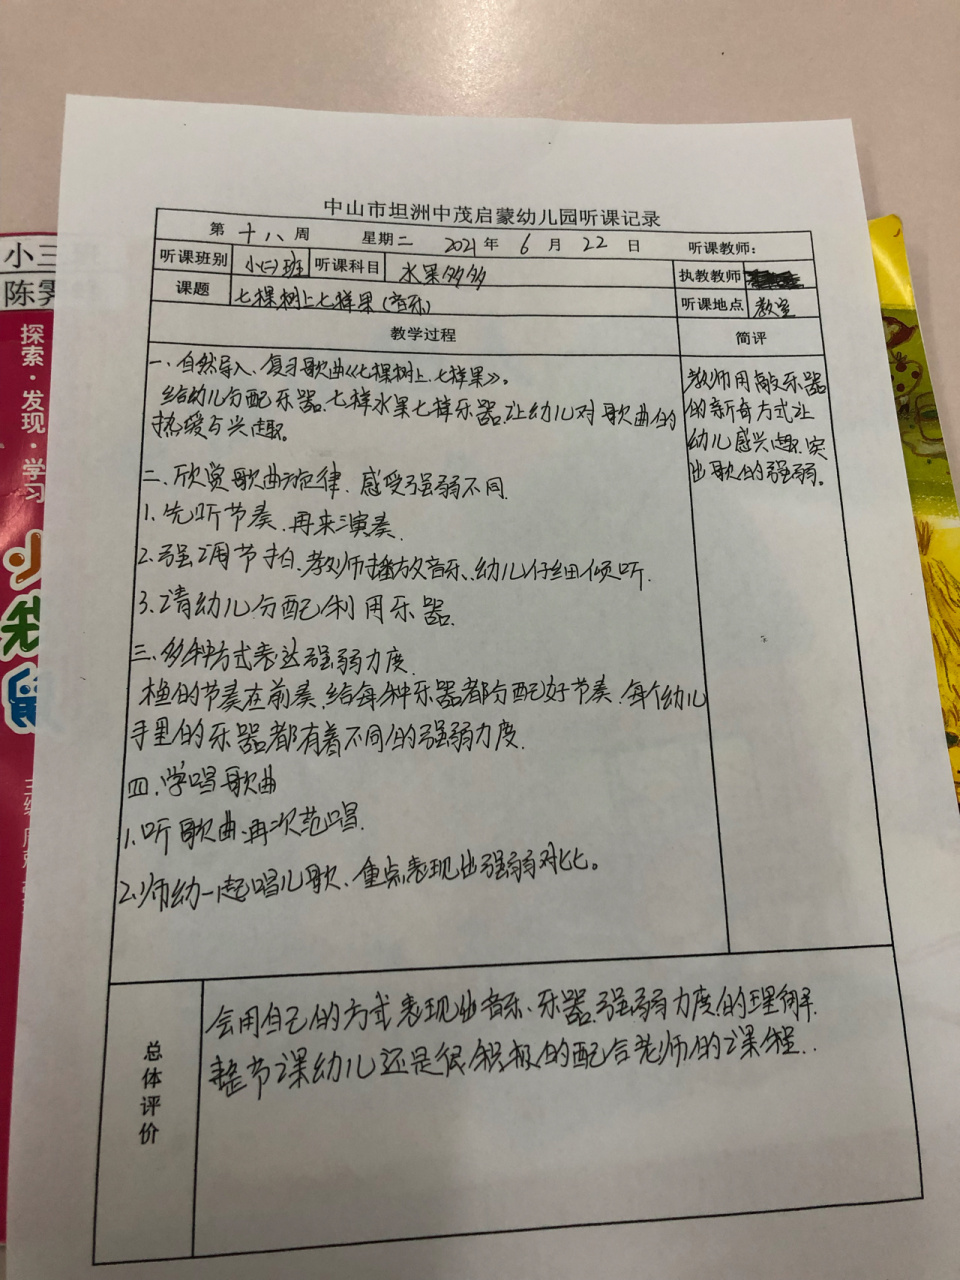 中山市坦洲中茂启蒙幼儿园听课记录
第十八周 星期二 2021年6月22日 听课教师:
听课班别 小(三)班 听课科目 水果多多 执教教师
课题 七棵树上七样果(音乐) 听课地点 教室
教学过程 简评
一、自然导入、复习歌曲《七棵树上七样果》。
给幼儿分配乐器、七样水果七样乐器、让幼儿对歌曲的
热爱与兴趣。
二、欣赏歌曲旋律、感受强弱不同.
1.先听节奏、再来演奏.
2.强调节拍、教师播放音乐、幼儿仔细倾听.
3.请幼儿分配利用乐器.
三、多种方式表达强弱力度.
的节奏在前奏、给每种乐器都分配好节奏、每个幼儿
手里的乐器都有着不同的强弱力度.
四.学唱歌曲
1.听歌曲、再次范唱.
2.师幼一起唱儿歌、重点表现出强弱对比。
教师用敲乐器
的新奇方式让
幼儿感兴趣.突
出歌的强弱。
总体评价
会用自己的方式表现出音乐、乐器、强弱力度的理解.
整节课幼儿还是很积极的配合老师的课程..
小三
陈霁
探索·发现·学习